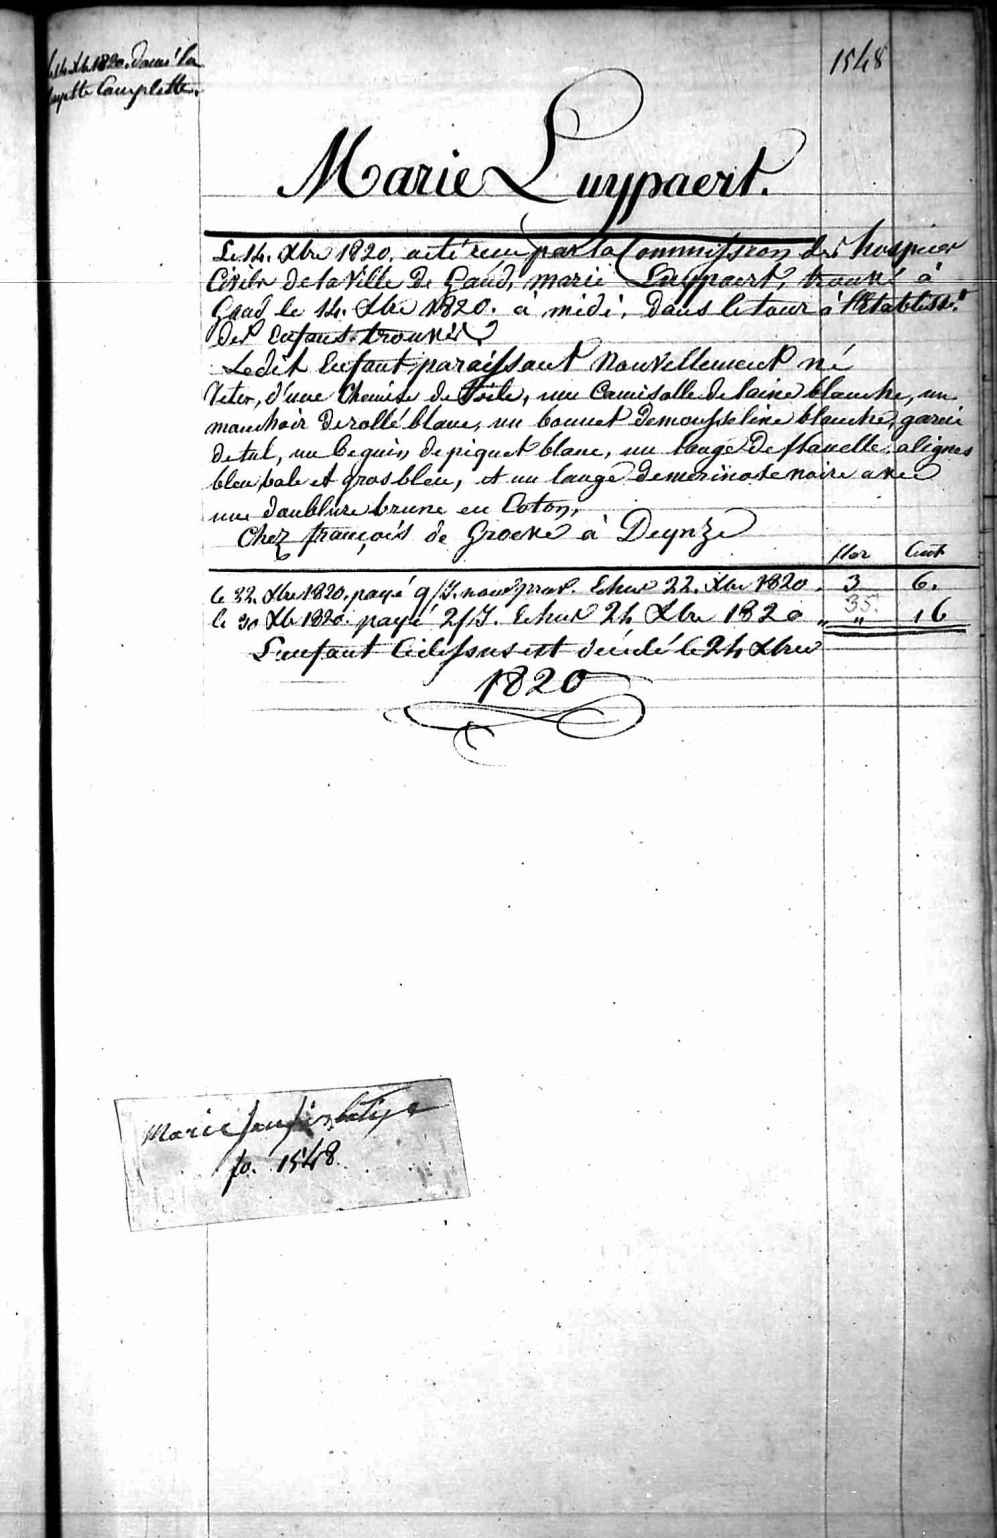 le 14. Xbre 1820. donné la
layette Complette.
1548
Marie Luypaert.
Le 14. Xbre 1820. a été recu par la Commission des hospices
Civils de la Ville de Gand, marie Luypaert, trouvé à
Gand le 14. Xbre 1820. à midi, dans le tour à l'Etablisst.
des enfans trouvés
Ledit Enfant paraissant Nouvellement né
Vetu, d'une Chemise de toile, une Camisolle de laine blanche, un
mouchoir de collé blanc, un bonnet de mousseline blanche, garni
de tul, un beguin de piquet blanc, un lange de flanelle, alignes
bleu pale et gros bleu, et un lange de merinos noire avec
une doublure brune en Coton,
Chez françois de Groeve à Deynze
flor Cent
le 22. Xbre 1820. payé 9/J. nour. Echus 22. Xbre 1820. 3 6.
35.
le 30 Xb 1820. payé 2/J. Echus 24 Xbre 1820 „ „ 16
L'enfant Cidessus est décédé le 24 Xbre
1820
Marie
fo. 1548.